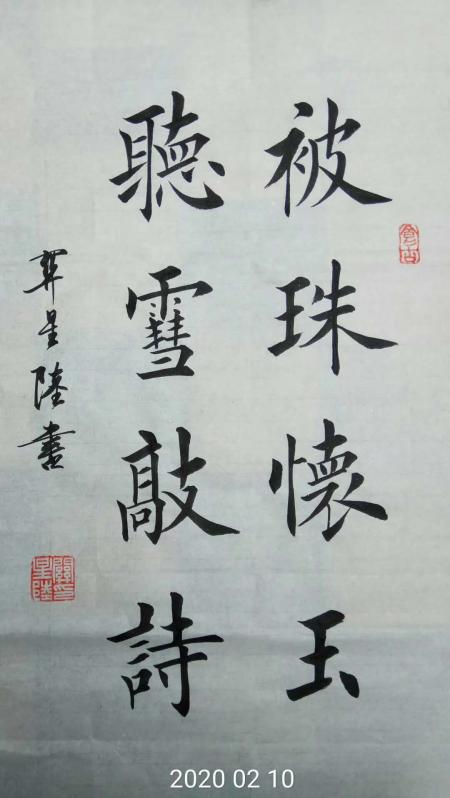 被珠懷玉
聽䨮敲詩
星陸書
2020 02 10